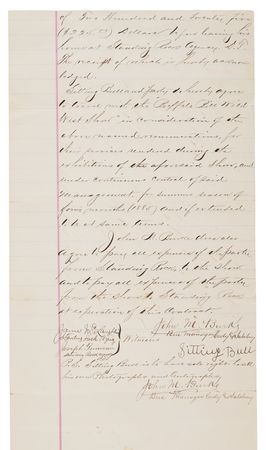 of Two Hundred and Twenty five
(225.00) Dollars before leaving his
home at Standing Rock Agency, D.T.
The receipt of which is hereby acknow
ledged.
Sitting Bull and party do hereby agree
to travel with the Buffalo Bill Wild
West Show in consideration of the
above named remuneration, for
their services rendered during the
exhibitions of the aforesaid Show, and
under continuous control of said
Management, for summer season of
four months (1885) and if extended
to be at same terms.
John M. Burke also
agree to pay all expenses of the party
from Standing Rock to the Show
and to pay all expenses of the party
from the Show to Standing Rock
at expiration of this Contract.
John M. Burke
James McLaughlin
Joseph Primeau
Witnesses
Sitting Bull
P.S. Sitting Bull is to have sole right to sell
his own Photographs and Autographs.
John M. Burke